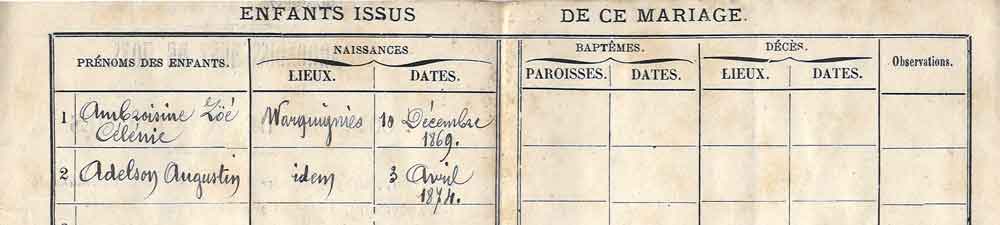 ENFANTS ISSUS DE CE MARIAGE.
PRÉNOMS DES ENFANTS. NAISSANCES BAPTÊMES. DÉCÈS. Observations.
LIEUX. DATES. PAROISSES. DATES. LIEUX. DATES.
1 Ambroisine Zöé Warquignies 10 Décembre
Célénie 1869.
2 Adelson Augustin idem 3 Avril
1874.